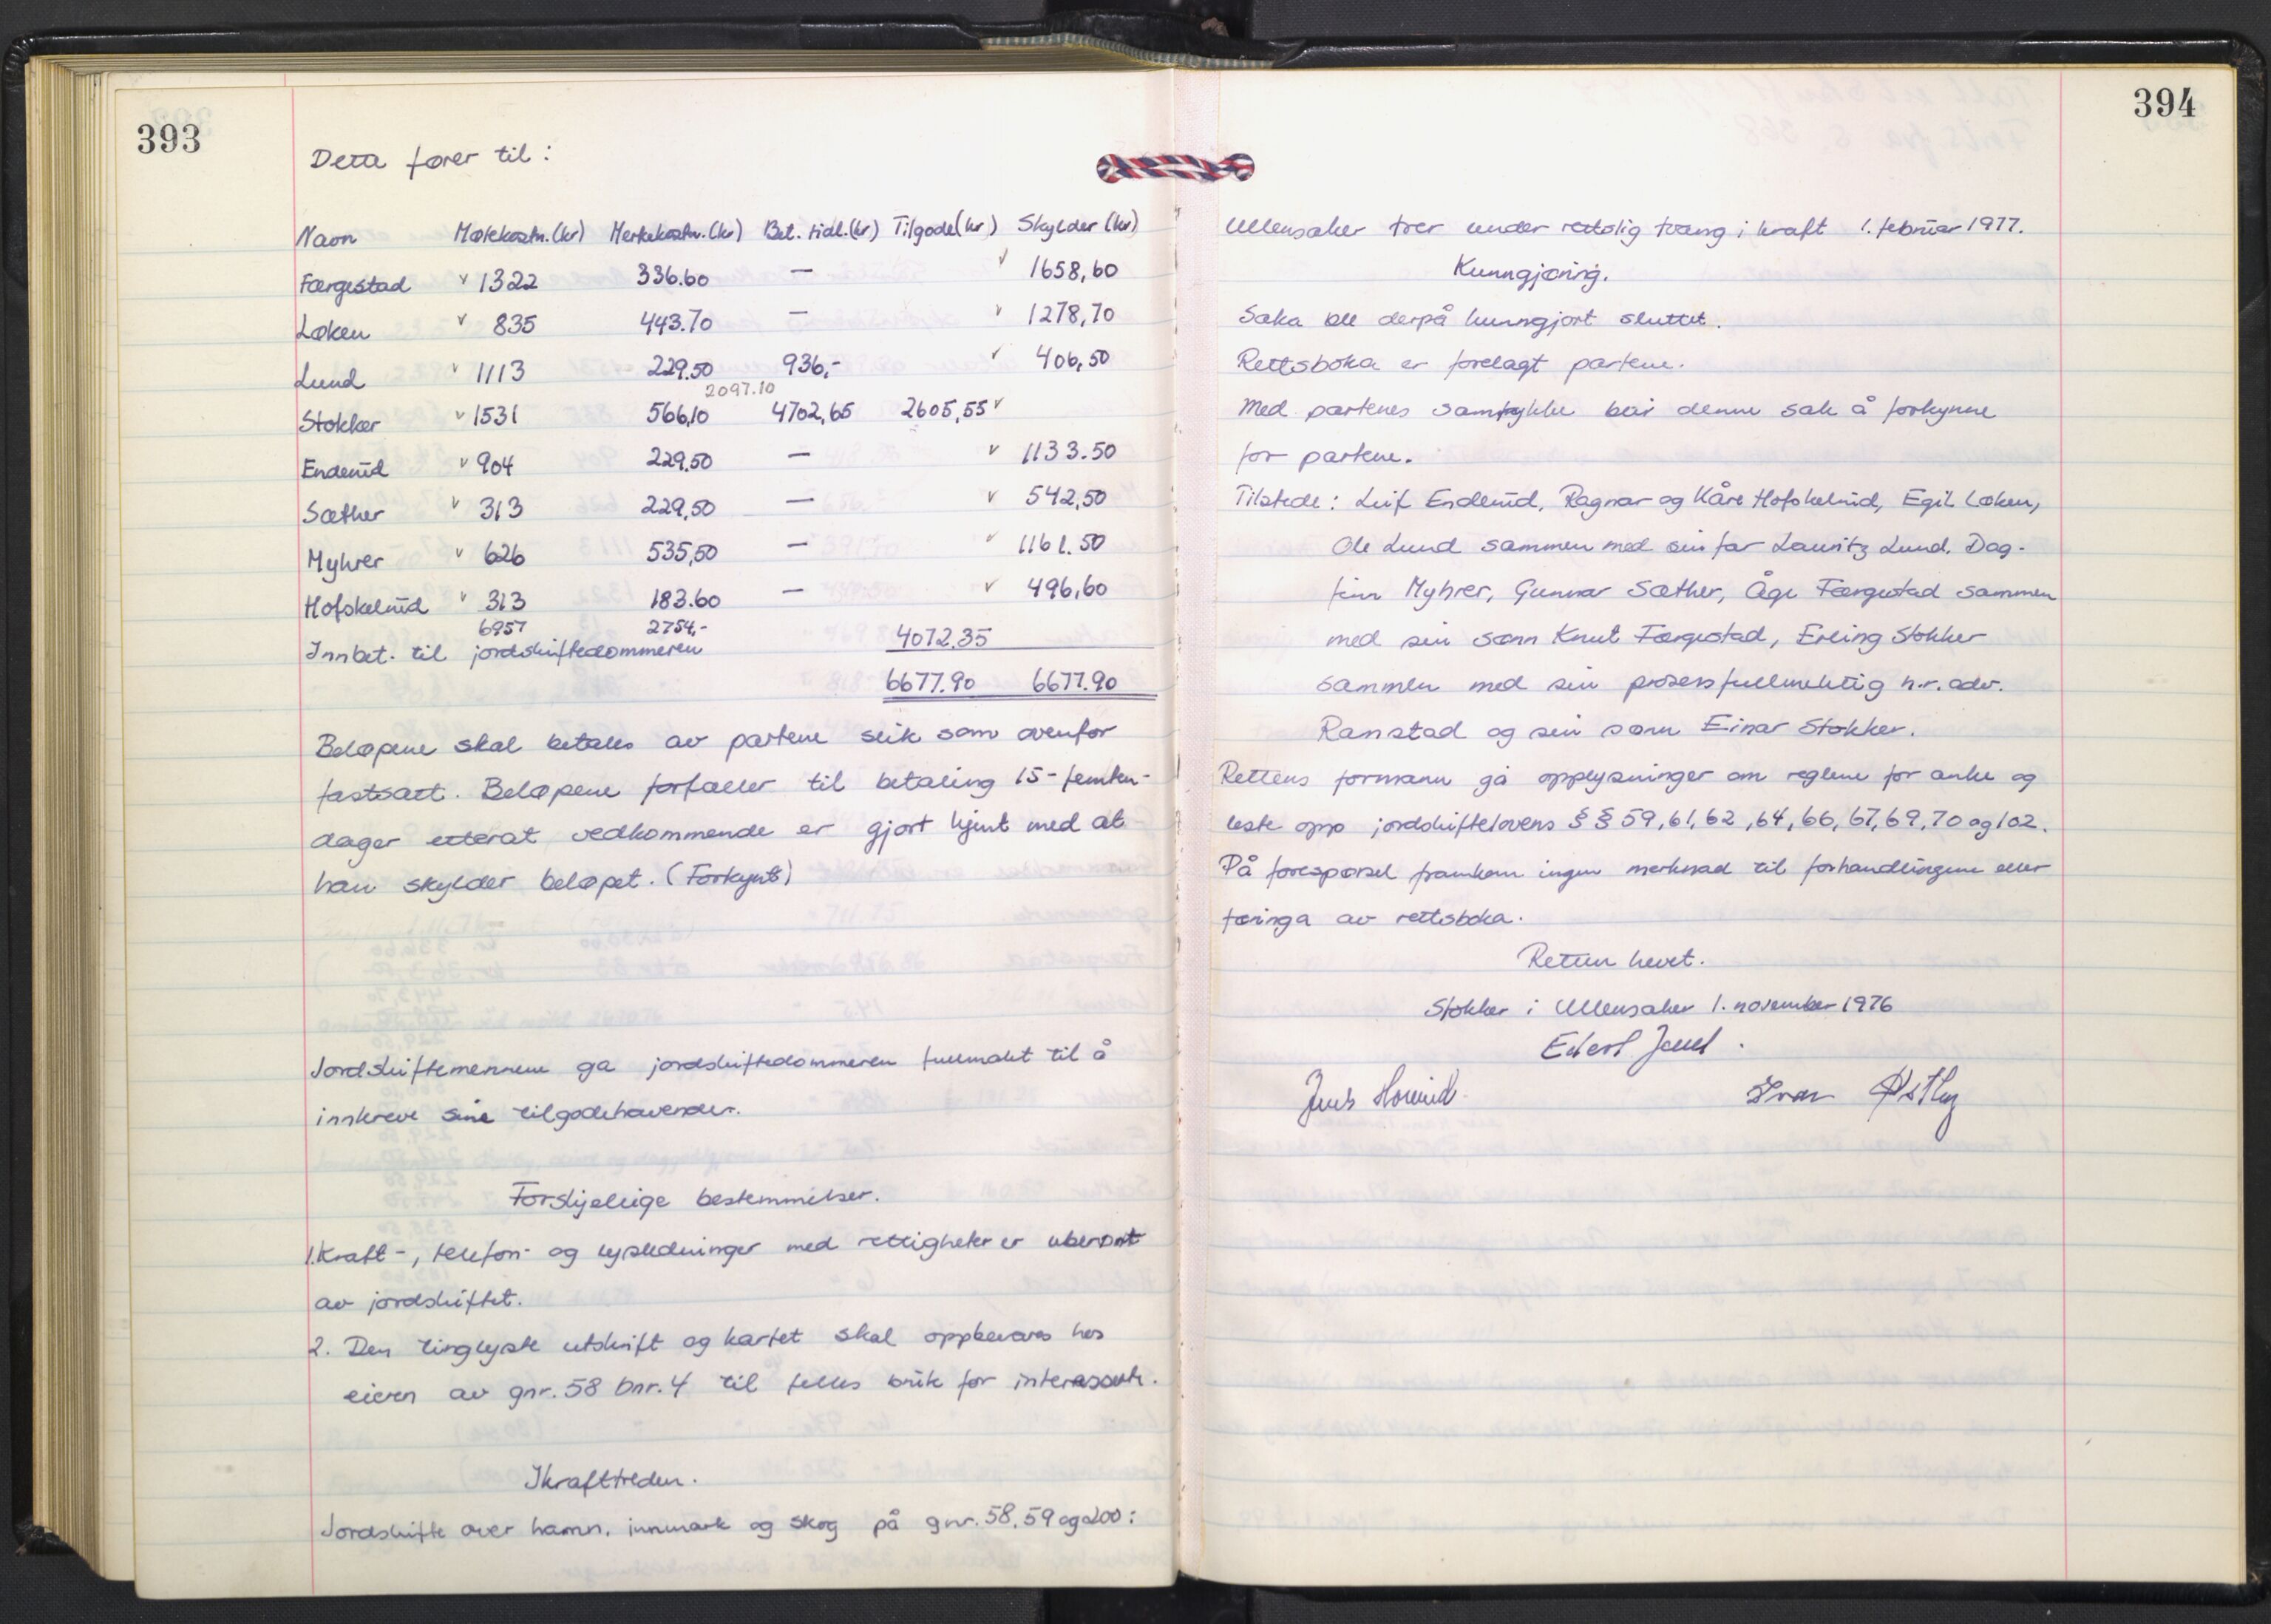 393
Dette fører til:
Navn Møtekostn.(kr) Merkekostn.(kr) Bet. tidl.(kr) Tilgode(kr) Skylder (kr)
Færgestad v 1322 336.60 — v 1658,60
Løken v 835 443.70 — v 1278,70
Lund v 1113 229.50 936,- v 406,50
2097.10
Stokker v 1531 566,10 4702,65 2605,55 v
Enderud v 904 229.50 — v 1133.50
Sæther v 313 229,50 — v 542,50
Myhrer v 626 535,50 — v 1161.50
Hofskelrud v 313 183.60 — v 496,60
6957 2754,-
Innbet. til jordskiftedommeren 4072.35
6677.90 6677.90
Beløpene skal betales av partene slik som ovenfor
fastsatt. Beløpene forfaller til betaling 15-femten-
dager etterat vedkommende er gjort kjent med at
han skylder beløpet. (Forkynt)
Jordskiftemennene ga jordskiftedommeren fullmakt til å
innkreve sine tilgodehavender.
Forskjellige bestemmelser.
1. Kraft-, telefon- og lysledninger med rettigheter er uberørt
av jordskiftet.
2. Den tinglyste utskrift og kartet skal oppbevares hos
eieren av gnr. 58 bnr. 4 til felles bruk for interessentr.
Ikrafttreden.
Jordskifte over hamn, innmark og skog på gnr. 58, 59 og 200:
394
Ullensaker trer under rettslig tvang i kraft 1. februar 1977.
Kunngjøring.
Saka ble derpå kunngjort sluttet.
Rettsboka er forelagt partene.
Med partenes samtykke ble denne sak å forkynne
for partene.
Tilstede: Leif Enderud, Ragnar og Kåre Hofskelrud, Egil Løken,
Ole Lund sammen med sin far Lauritz Lund, Dag-
finn Myhrer, Gunnar Sæther, Åge Færgestad sammen
med sin sønn Knut Færgestad, Erling Stokker
sammen med sin prosessfullmektig h.r.adv.
Ranstad og sin sønn Einar Stokker.
Rettens formann ga opplysninger om reglene for anke og
leste opp jordskiftelovens §§ 59, 61, 62, 64, 66, 67, 69, 70 og 102.
På forespørsel framkom ingen merknad til forhandlingene eller
føringa av rettsboka.
Retten hevet.
Stokker i Ullensaker 1. november 1976
Jens
Ivar Østby